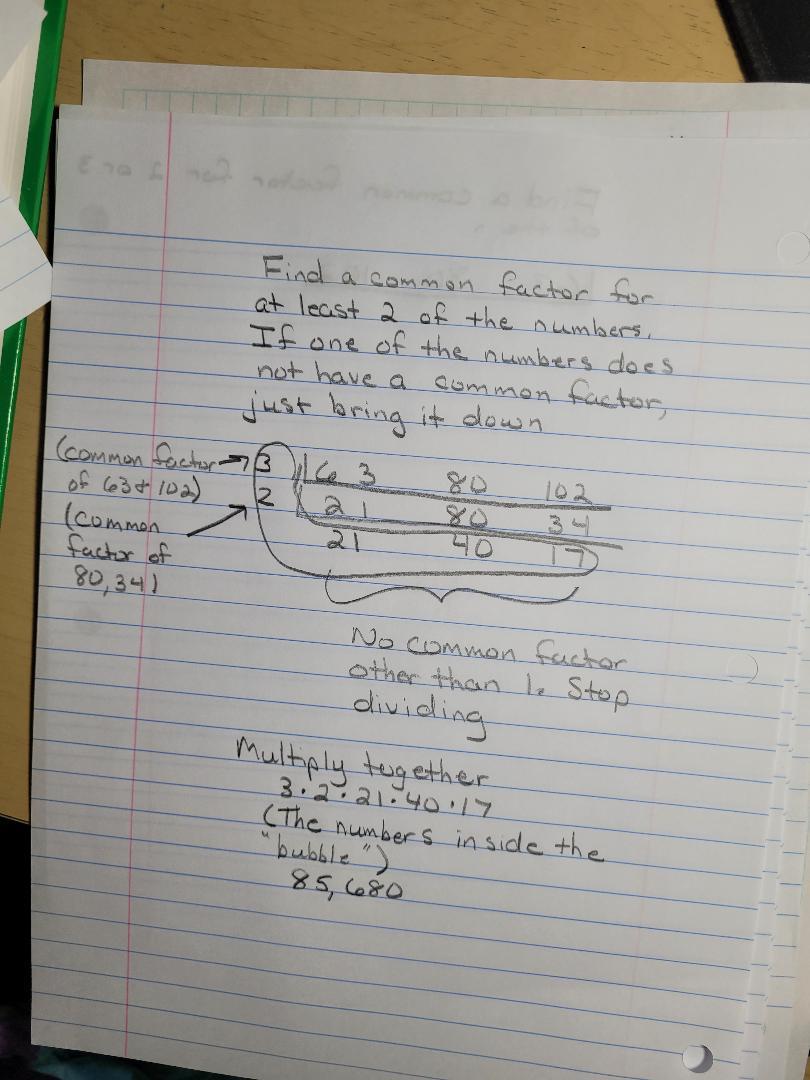 Find a common factor for
at least 2 of the numbers.
If one of the numbers does
not have a common factor,
just bring it down
(common factor → 3 63 80 102
of 63 & 102) 2 21 80 34
(common 21 40 17
factor of
80,34)
No common factor
other than 1. Stop
dividing
Multiply together
3·2·21·40·17
(The numbers inside the
"bubble")
85,680